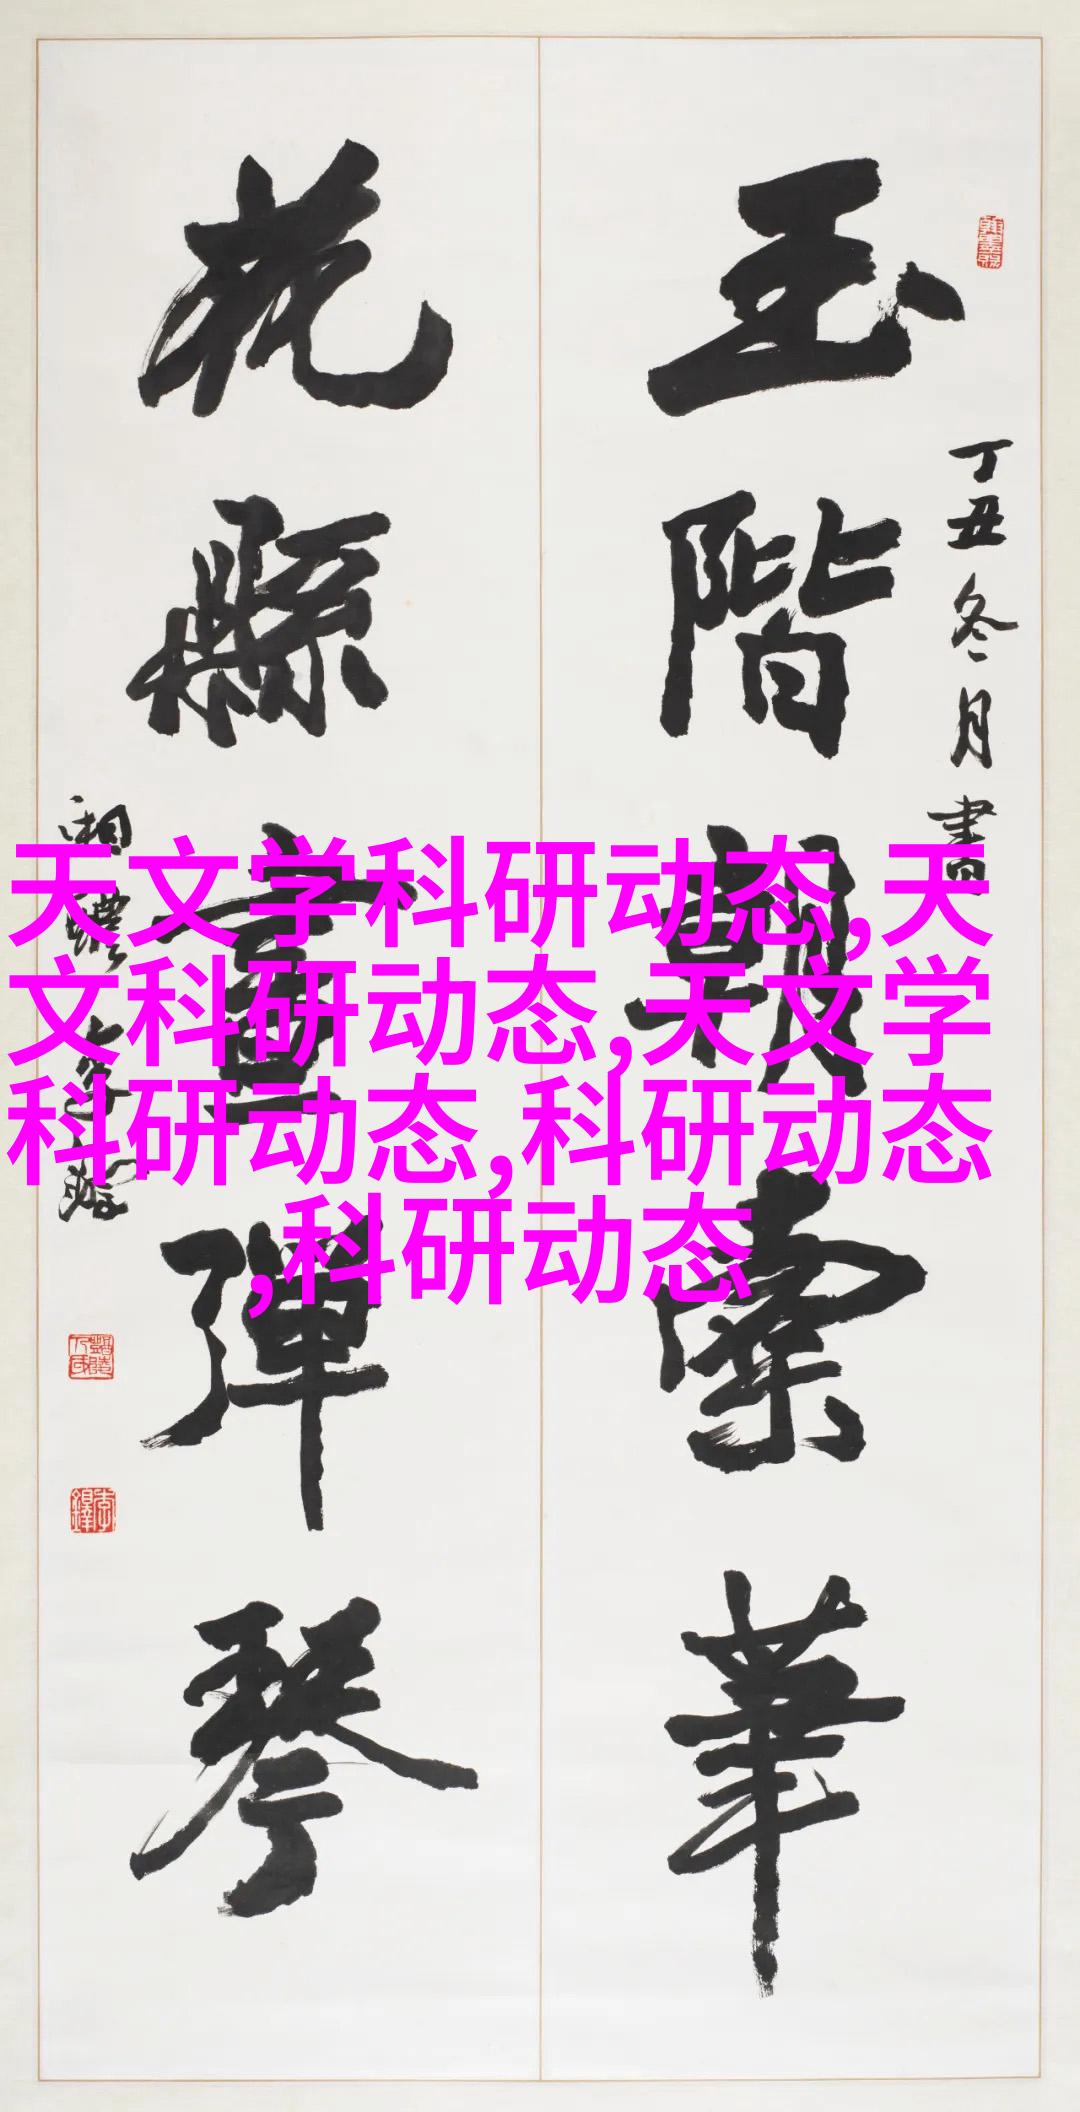 玉階朝索華
花縣畫彈琴
丁丑冬月書
湘醴李鐸
天文学科研动态,天
文科研动态,天文学
科研动态,科研动态
,科研动态